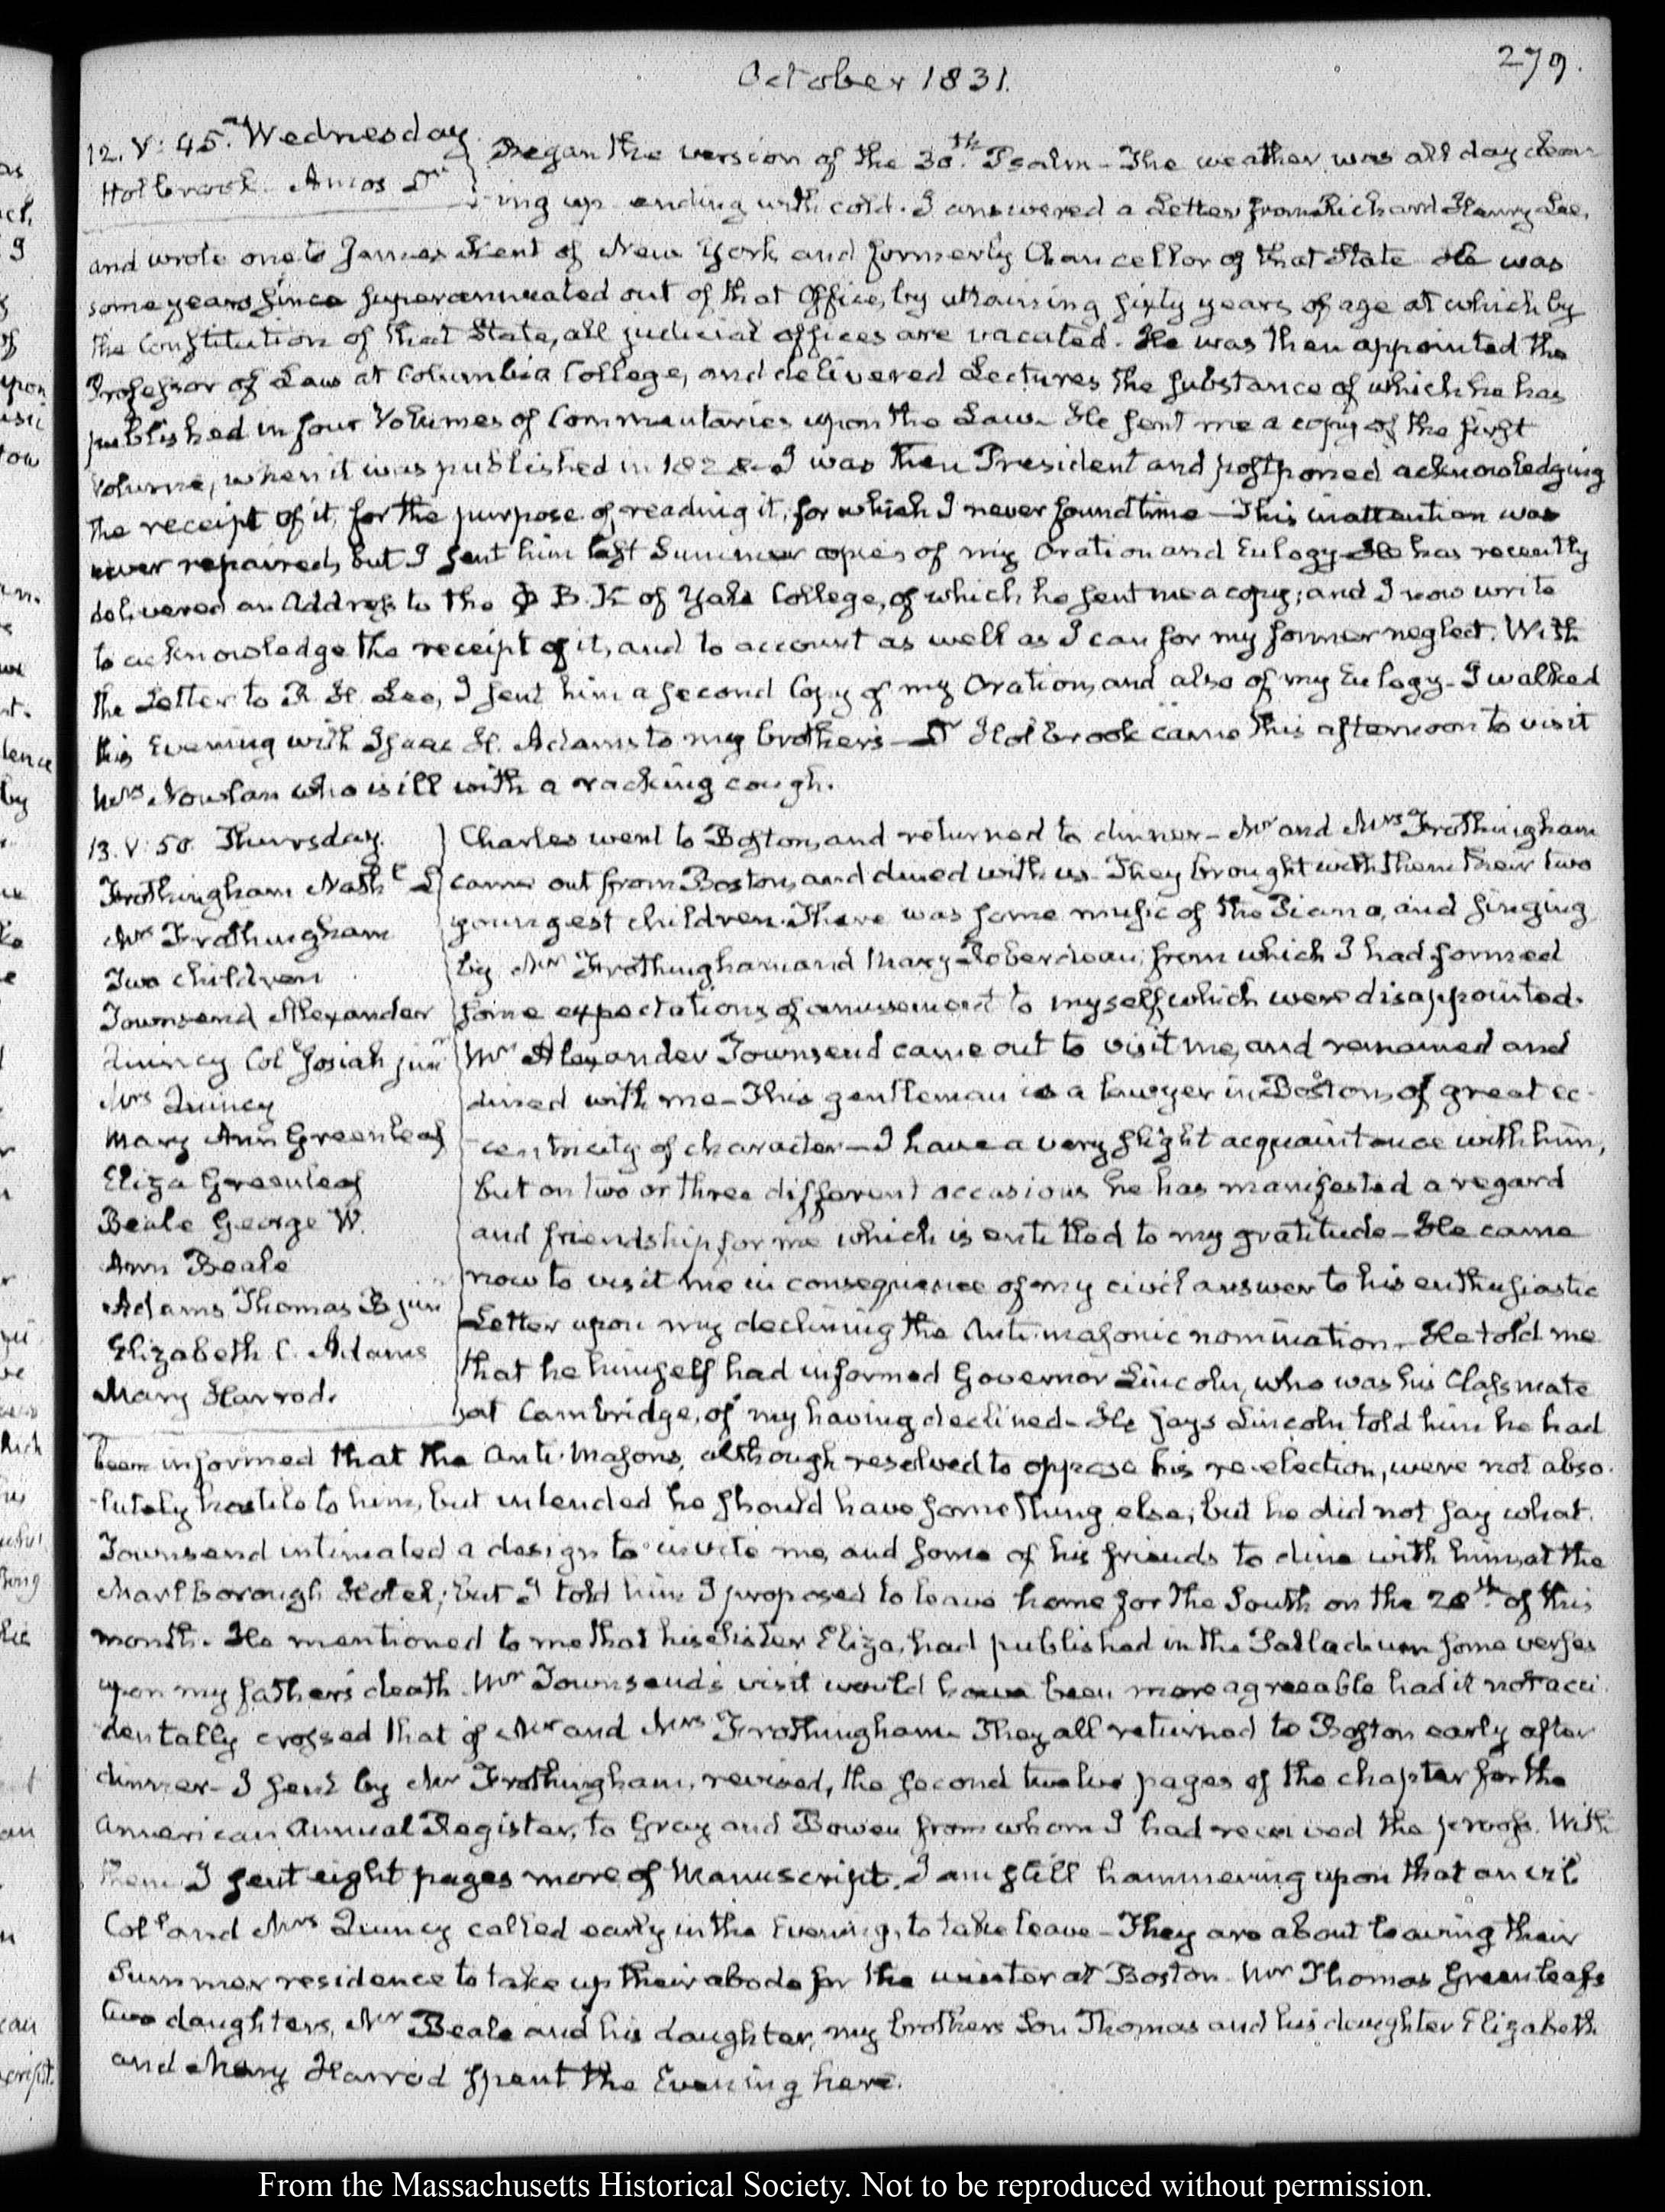 279.
October 1831.
12. V: 45. Wednesday
Holbrook. Amos Dr
Began the version of the 30th. Psalm – The weather was all day clear-
ing up ending with cold. I answered a Letter from Richard Henry Lee,
and wrote one to James Kent of New York and formerly Chancellor of that State He was
some years since superannuated out of that Office, by attaining sixty years of age at which by
the Constitution of that State, all judicial offices are vacated. He was then appointed the
Professor of Law at Columbia College, and delivered Lectures the substance of which he has
published in four Volumes of Commentaries upon the Law – He sent me a copy of the first
Volume, when it was published in 1828 – I was then President and postponed acknowledging
the receipt of it, for the purpose of reading it, for which I never found time – This inattention was
never repaired, but I sent him last Summer copies of my Oration and Eulogy – He has recently
delivered an Address to the Φ B. K of Yale College, of which he sent me a copy; and I now write
to acknowledge the receipt of it, and to account as well as I can for my former neglect. With
the Letter to R. H. Lee, I sent him a second Copy of my Oration, and also of my Eulogy – I walked
this Evening with Isaac H. Adams to my brother's – Dr Holbrook came this afternoon to visit
Mrs Nowlan who is ill with a racking cough.
13. V: 50. Thursday.
Frothingham Nathl L
Mrs Frothingham
Two children
Townsend Alexander
Quincy Coll Josiah junr
Mrs Quincy
Mary Ann Greenleaf
Eliza Greenleaf
Beale George W.
Ann Beale
Adams Thomas B jun
Elizabeth C. Adams
Mary Harrod.
Charles went to Boston, and returned to dinner – Mr and Mrs Frothingham
came out from Boston, and dined with us – They brought with them their two
youngest children. There was some music of the Piano, and singing
by Mr Frothingham and Mary Roberdeau, from which I had formed
some expectations of amusement to myself which were disappointed.
Mr Alexander Townsend came out to visit me, and remained and
dined with me – This gentleman is a lawyer in Boston, of great ec-
centricity of character – I have a very slight acquaintance with him,
but on two or three different occasions he has manifested a regard
and friendship for me which is entitled to my gratitude – He came
now to visit me in consequence of my civil answer to his enthusiastic
Letter upon my declining the Antimasonic nomination. He told me
that he himself had informed Governor Lincoln, who was his Classmate
at Cambridge, of my having declined – He says Lincoln told him he had
been informed that the Anti-Masons, although resolved to oppose his re-election, were not abso-
lutely hostile to him, but intended he should have something else; but he did not say what.
Townsend intimated a design to invite me, and some of his friends to dine with him, at the
Marlborough Hotel; but I told him I proposed to leave home for the South on the 20th. of this
month. He mentioned to me that his Sister Eliza, had published in the Palladium some verses
upon my father's death. Mr Townsend's visit would have been more agreeable had it not acci-
dentally crossed that of Mr and Mrs Frothingham They all returned to Boston early after
dinner – I sent by Mr Frothingham, revised, the second twelve pages of the chapter for the
American Annual Register, to Gray and Bowen from whom I had received the proofs. With
them I sent eight pages more of Manuscript. I am still hammering upon that anvil
Coll and Mrs Quincy called early in the Evening, to take leave – They are about leaving their
Summer residence to take up their abode for the winter at Boston. Mr Thomas Greenleaf's
two daughters, Mr Beale and his daughter, my brother's Son Thomas and his daughter Elizabeth
and Mary Harrod spent the Evening here.
From the Massachusetts Historical Society. Not to be reproduced without permission.